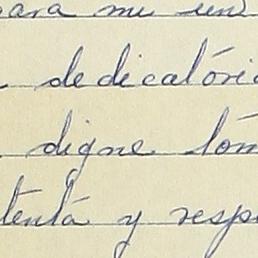 para mi un
dedicatóri
digne tóm
tentá y resp